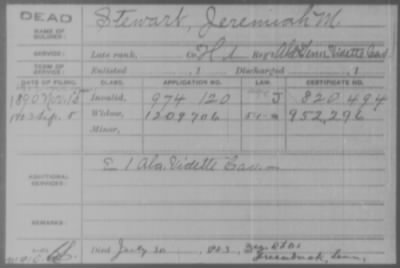 DEAD
NAME OF SOLDIER: Stewart, Jeremiah M.
SERVICE: Late rank, Co. H 1 Reg't Ala & Tenn Vidette Cav.
TERM OF SERVICE: Enlisted , 1 Discharged , 1
DATE OF FILING. CLASS. APPLICATION NO. LAW. CERTIFICATE NO.
1890 Invalid, 974 120 J 820 494
5 Widow, 1209706 952,296
Minor,
ADDITIONAL SERVICES: E 1 Ala. Vidette Cav.
REMARKS:
Died July 30